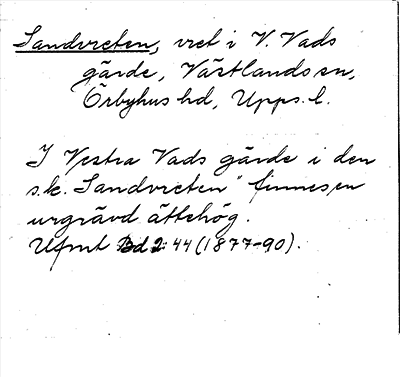 Sandvreten, vret i V. Vads
gärde, Västlands sn,
Örbyhus hd, Upps. l.
I Vestra Vads gärde i den
s.k. Sandvreten" finnes en
urgrävd ättehög.
Ufmt Bd 2: 44 (1877-90).